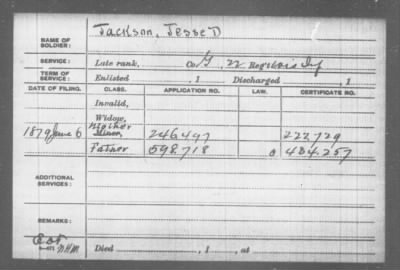 NAME OF SOLDIER: Jackson, Jesse D
SERVICE: Late rank, Co. G, 22 Reg't Wis Inf
TERM OF SERVICE: Enlisted , 1 Discharged , 1
DATE OF FILING. CLASS. APPLICATION NO. LAW. CERTIFICATE NO.
Invalid,
Widow,
Mother
1879 June 6 Minor, 246497 222729
Father 598.718 484.257
ADDITIONAL SERVICES:
REMARKS:
Died , 1 , at